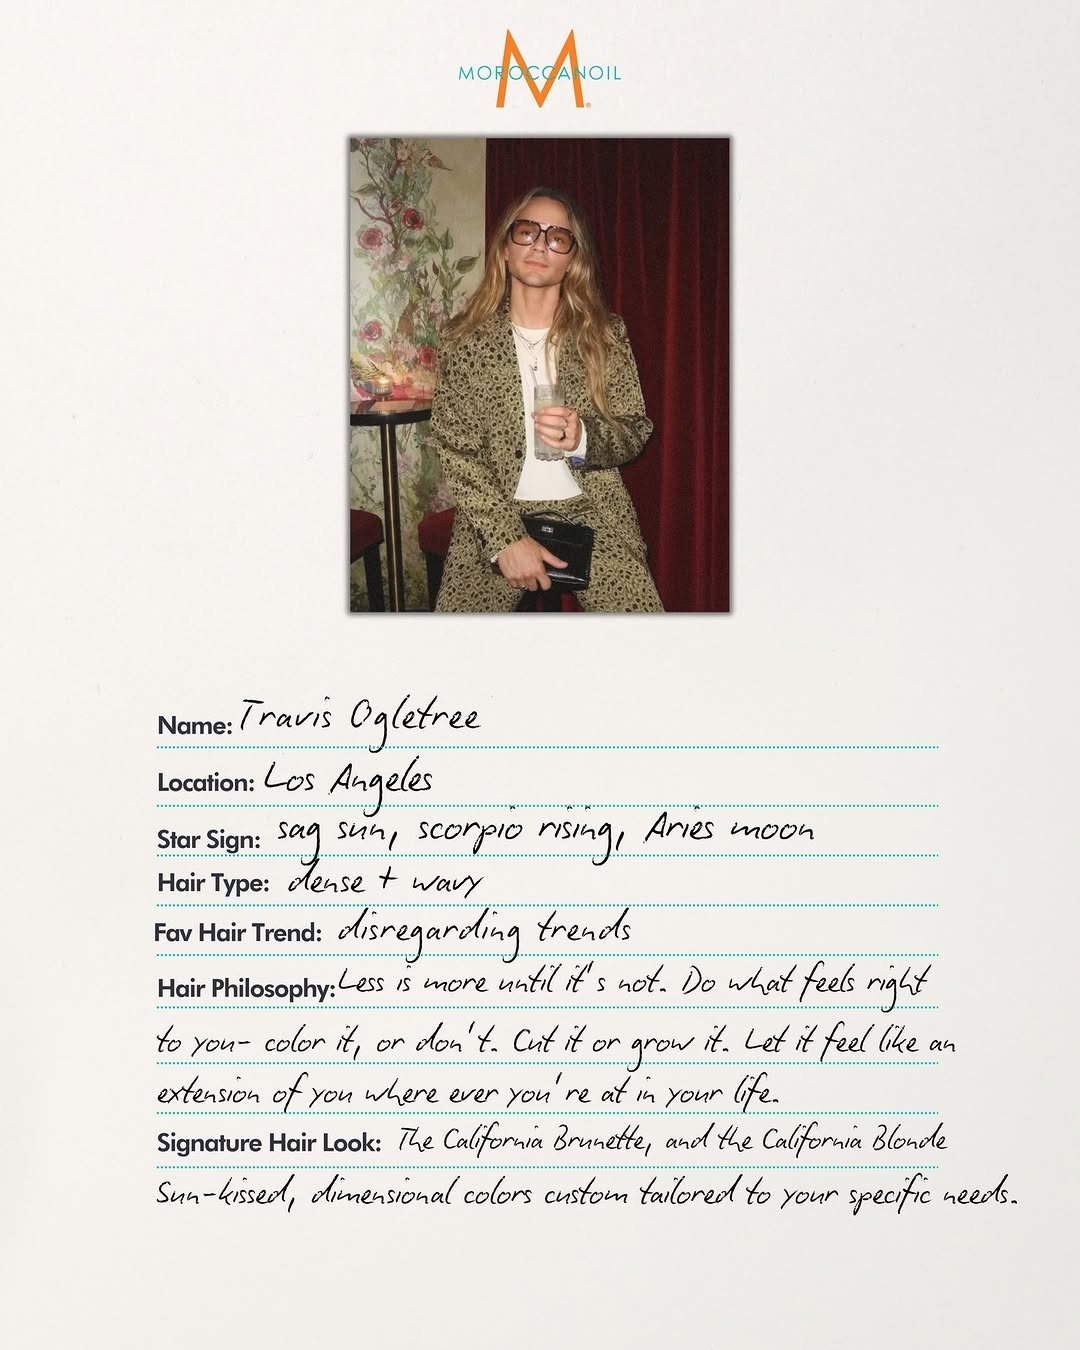 MOROCCANOIL
M®
Name: Travis Ogletree
Location: Los Angeles
Star Sign: sag sun, scorpio rising, Aries moon
Hair Type: dense + wavy
Fav Hair Trend: disregarding trends
Hair Philosophy: Less is more until it's not. Do what feels right
to you- color it, or don't. Cut it or grow it. Let it feel like an
extension of you where ever you're at in your life.
Signature Hair Look: The California Brunette, and the California Blonde
Sun-kissed, dimensional colors custom tailored to your specific needs.